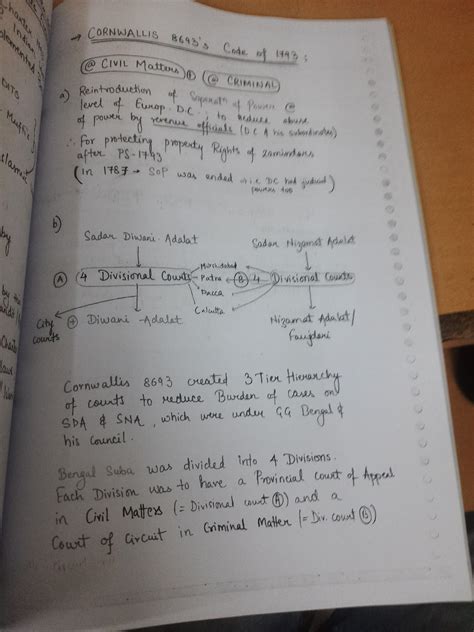 → CORNWALLIS 8693's Code of 1793 :
@ CIVIL Matters + @ CRIMINAL
a) Reintroduction of Separatn of Power @
level of Europ. D.C. ; to reduce abuse
of power by revenue officials (D.C & his subordinates)
∴ For protecting property Rights of zamindars
after PS-1793
(In 1787 → SOP was ended → i.e. DC had judicial
powers too)
b)
Sadar Diwani Adalat
Sadar Nizamat Adalat
A 4 Divisional Courts
Murshidabad
Patna
Dacca
Calcutta
B 4 Divisional Courts
City courts
+ Diwani Adalat
Nizamat Adalat/
Faujdari
Cornwallis 8693 created 3 Tier Hierarchy
of courts to reduce Burden of cases on
SDA & SNA, which were under GG Bengal &
his council.
Bengal Suba was divided into 4 Divisions.
Each Division was to have a Provincial court of Appeal
in Civil Matters (= Divisional court A) and a
Court of Circuit in Criminal Matter (= Div. court B)